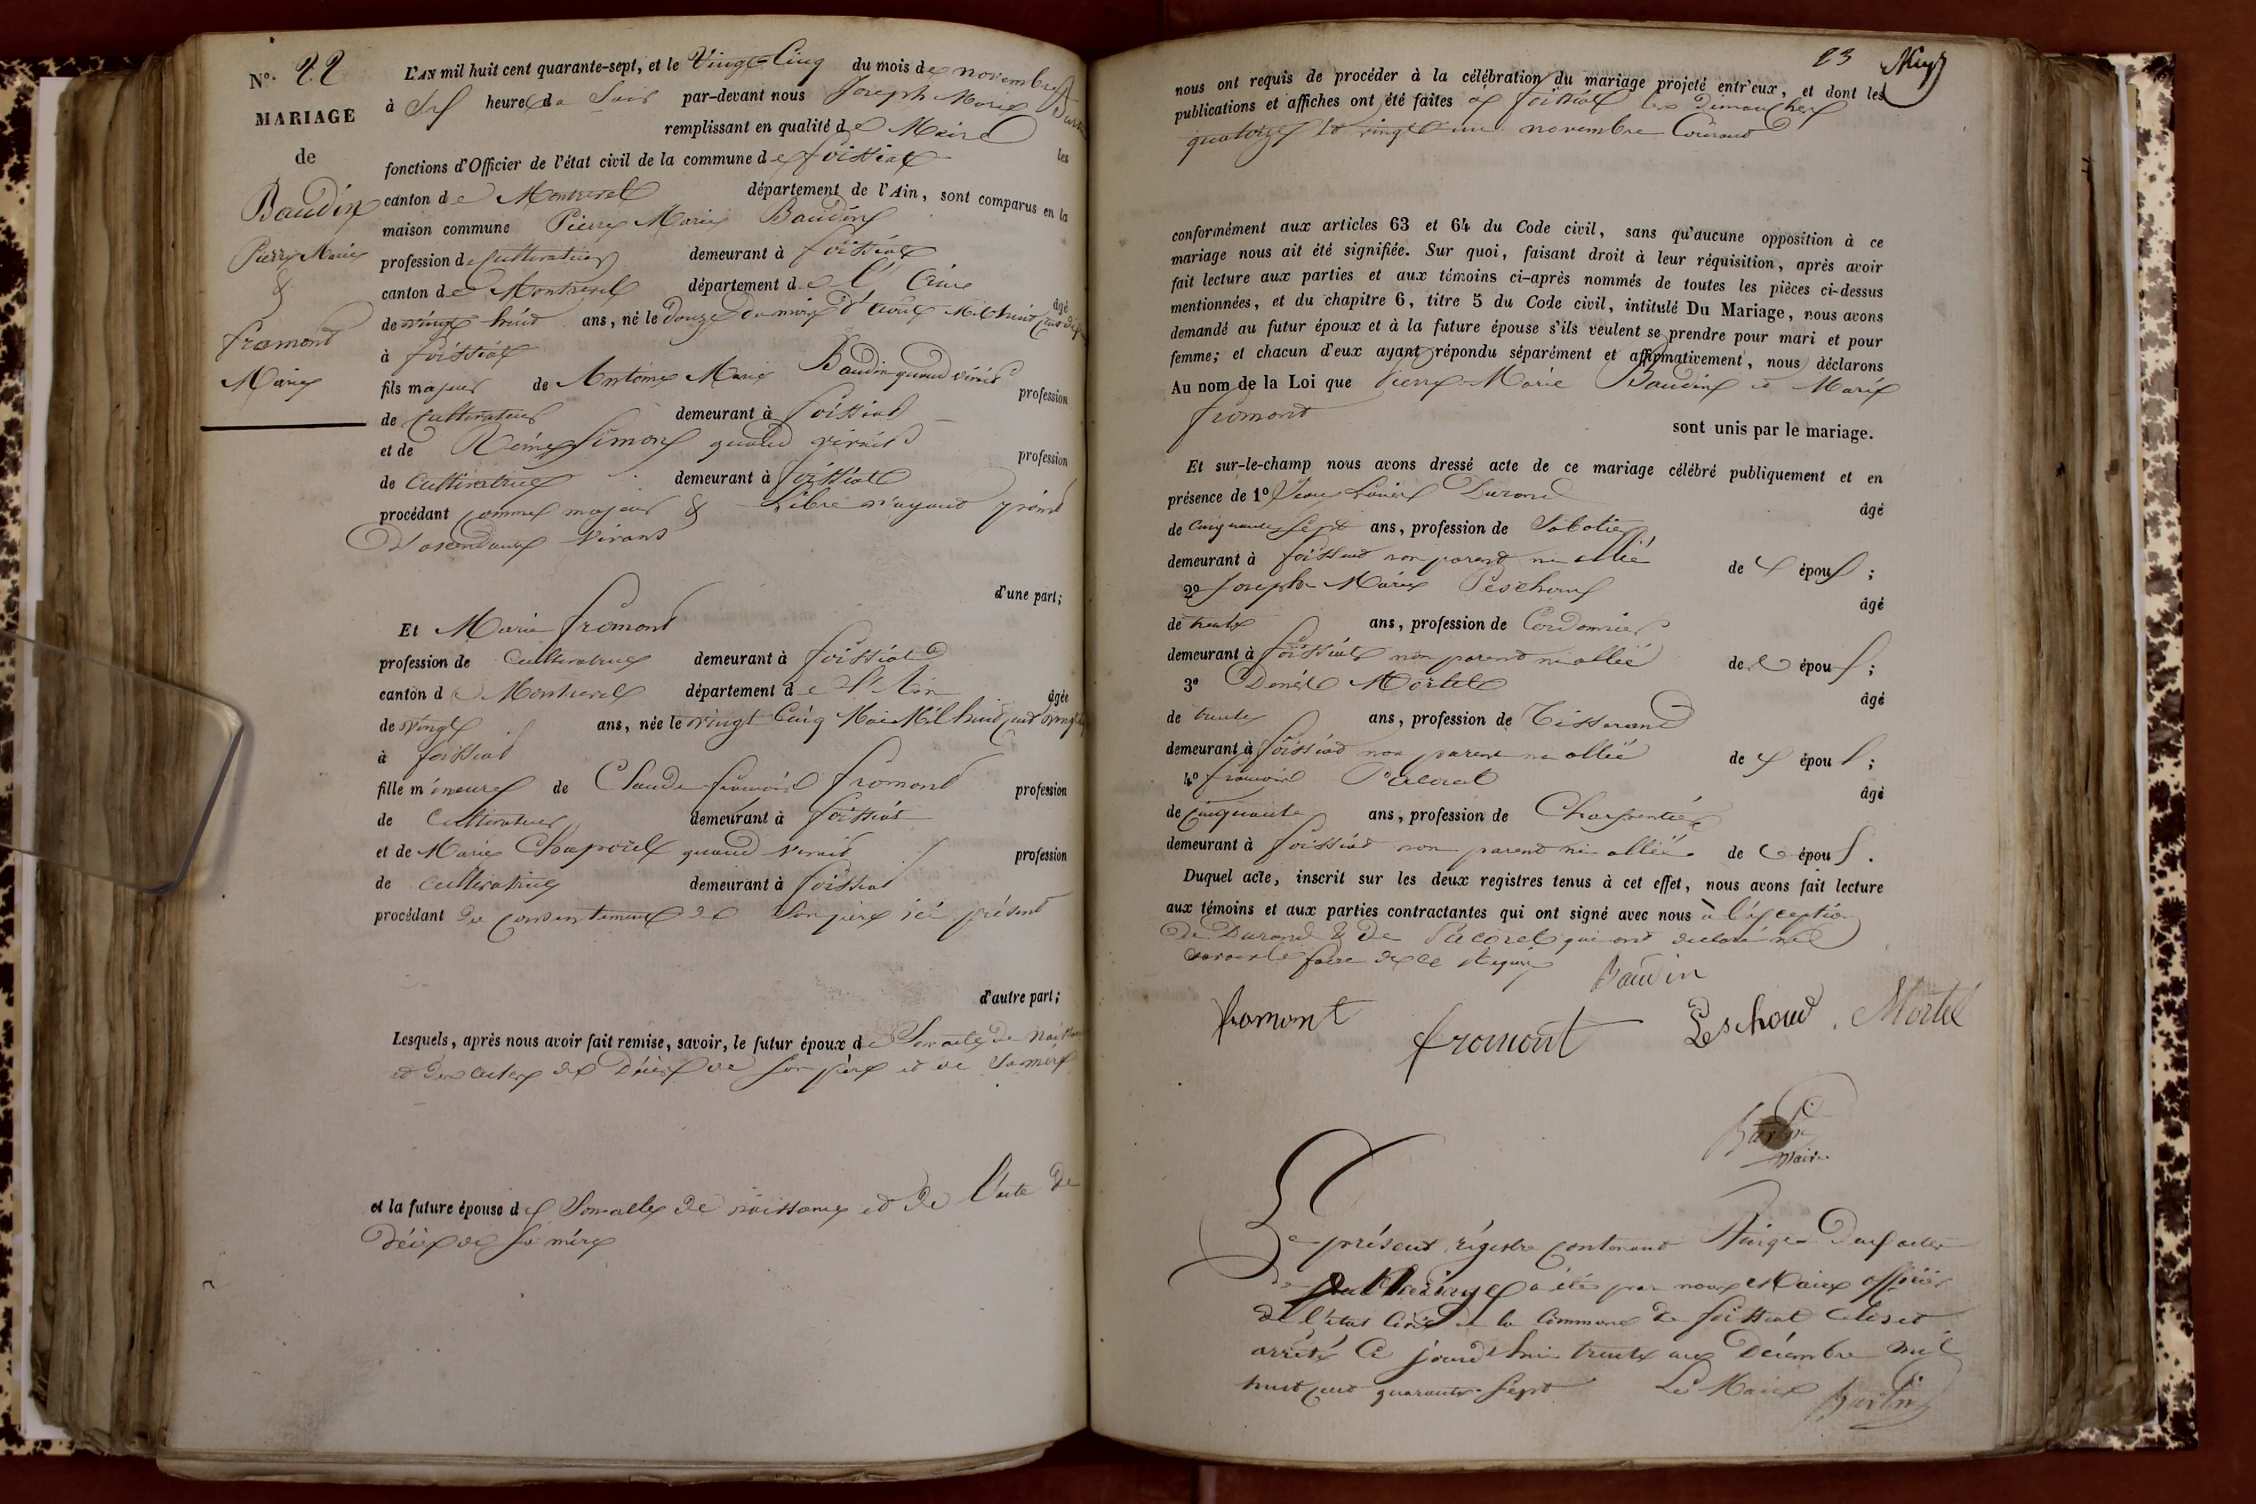 N°. 22
MARIAGE
de
Baudin
Pierre Marie
&
fromont
Marie
L'AN mil huit cent quarante-sept, et le Vingt Cinq du mois de novembre
à six heures du Soir par-devant nous Joseph Marie
remplissant en qualité de Maire les
fonctions d'Officier de l'état civil de la commune de foissiat
canton de Montrevel département de l'Ain, sont comparus en la
maison commune Pierre Marie Baudin
profession de Cultivateur demeurant à foissiat
canton de Montrevel département de l'Ain âgé
de vingt huit ans, né le douze du mois d'août Mil huit cent dix
à foissiat
fils majeur de Antoine Marie Baudin quand vivait profession
de Cultivateur demeurant à foissiat
et de Reine Simon quand vivait profession
de Cultivatrice demeurant à foissiat
procédant comme majeur & Libre n'ayant point
d'asendants vivans
d'une part;
Et Marie fromont
profession de Cultivatrice demeurant à foissiat
canton de Montrevel département de l'Ain âgée
de vingt ans, née le vingt Cinq Mai Mil huit cent vingt
à foissiat
fille mineure de Claude françois fromont profession
de Cultivateur demeurant à foissiat
et de Marie quand vivait profession
de cultivatrice demeurant à foissiat
procédant du consentement de Son père ici présent
d'autre part;
Lesquels, après nous avoir fait remise, savoir, le futur époux de Son acte de
et des actes de Décès de son père et de sa mère
et la future épouse de Son acte de naissance et de l'acte de
Décès de sa mère
23
nous ont requis de procéder à la célébration du mariage projeté entr'eux, et dont les
publications et affiches ont été faites à foissiat les dimanches
quatorze et vingt un novembre Courant
conformément aux articles 63 et 64 du Code civil, sans qu'aucune opposition à ce
mariage nous ait été signifiée. Sur quoi, faisant droit à leur réquisition, après avoir
fait lecture aux parties et aux témoins ci-après nommés de toutes les pièces ci-dessus
mentionnées, et du chapitre 6, titre 5 du Code civil, intitulé Du Mariage, nous avons
demandé au futur époux et à la future épouse s'ils veulent se prendre pour mari et pour
femme; et chacun d'eux ayant répondu séparément et affirmativement, nous déclarons
Au nom de la Loi que Pierre-Marie Baudin et Marie
fromont
sont unis par le mariage.
Et sur-le-champ nous avons dressé acte de ce mariage célébré publiquement et en
présence de 1° Jean Louis Durand âgé
de Cinquante Sept ans, profession de Sabotier
demeurant à foissiat non parent ni allié des époux ;
2° Joseph Marie Peschoux âgé
de trente ans, profession de Cordonnier
demeurant à foissiat non parent ni allié des époux ;
3° Mortel âgé
de trente ans, profession de Tisserand
demeurant à foissiat non parent ni allié des époux ;
4° françois Pacoret âgé
de cinquante ans, profession de Charpentier
demeurant à foissiat non parent ni allié des époux .
Duquel acte, inscrit sur les deux registres tenus à cet effet, nous avons fait lecture
aux témoins et aux parties contractantes qui ont signé avec nous à l'exception
de Durand & de Pacoret qui ont déclaré ne
savoir le faire de ce requis
Baudin
fromont fromont Peschoud Mortel
Maire
Le présent régistre contenant Vingt Deux actes
de Mariage a été par nous Maire officier
de l'état Civil de la Commune de foissiat Clos et
arrêté Ce jourd'hui trente un Décembre mil
huit cent quarante-Sept Le Maire